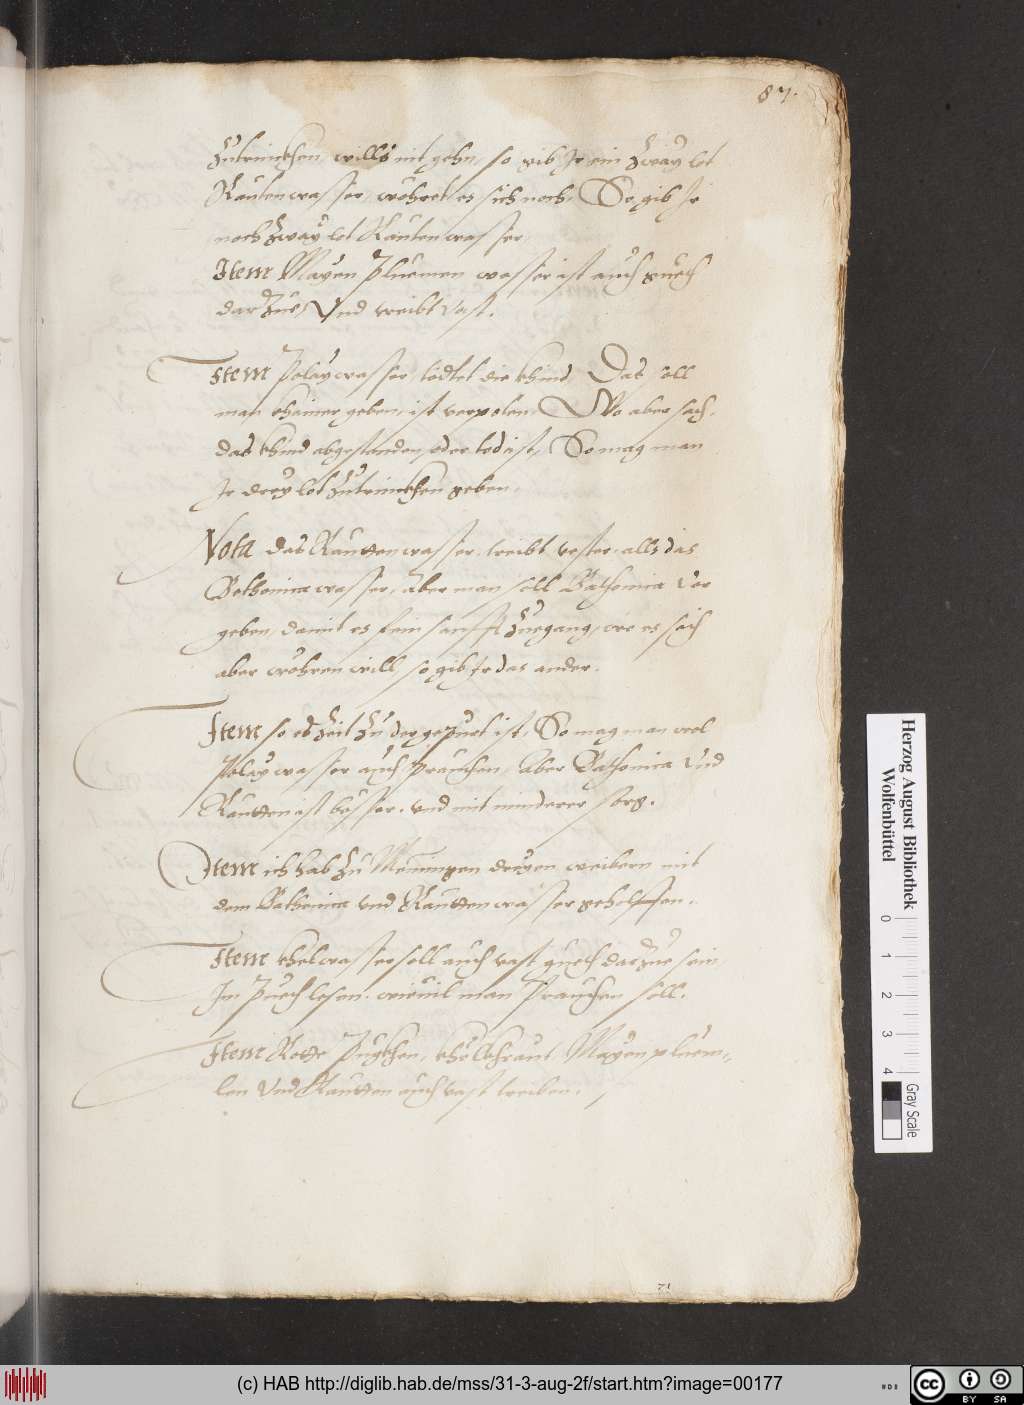 87.
Zutrinckhen, wills nit gehn, so gib Ir ein Zway lot
Rauten wasser, wöhret es sich noch, So gib Ir
noch Zway lot Rauten wasser.
Item Mayen Pluemen wasser ist auch guet
darZue, Vnd treibt vast.
Item Polay wasser, tödtet die khind, Das soll
man khainer geben, ist verpoten, Wo aber sach,
das khind abgestanden oder tod ist, So mag man
Ir drey lot Zutrinckhen geben.
Nota das Rautten wasser, treibt vester, alls das
Bethonica wasser, aber man soll Bathonica vor
geben, damit es fein sanfft Zuegang, wo es sich
aber wöhren will, so gib Ir das ander.
Item so es Zeit Zu der gepurt ist, So mag man wol
Polay wasser auch prauchen, Aber Bathonica Vnd
Rautten ist besser, vnd mit minderer sorg.
Item ich hab Zu Memingen dreyen weibern mit
dem Bathonica vnd Rautten wasser geholffen.
Item khöl wasser soll auch vast guet darZue sein,
Im Puech lesen, wieuil man prauchen soll.
Item Rotte Pugkhen, khölkhraut, Mayen pluem-
len Vnd Rautten auch vast treiben.
71
Herzog August Bibliothek
Wolfenbüttel
0 1 2 3 4
Gray Scale
(c) HAB http://diglib.hab.de/mss/31-3-aug-2f/start.htm?image=00177
cc BY SA